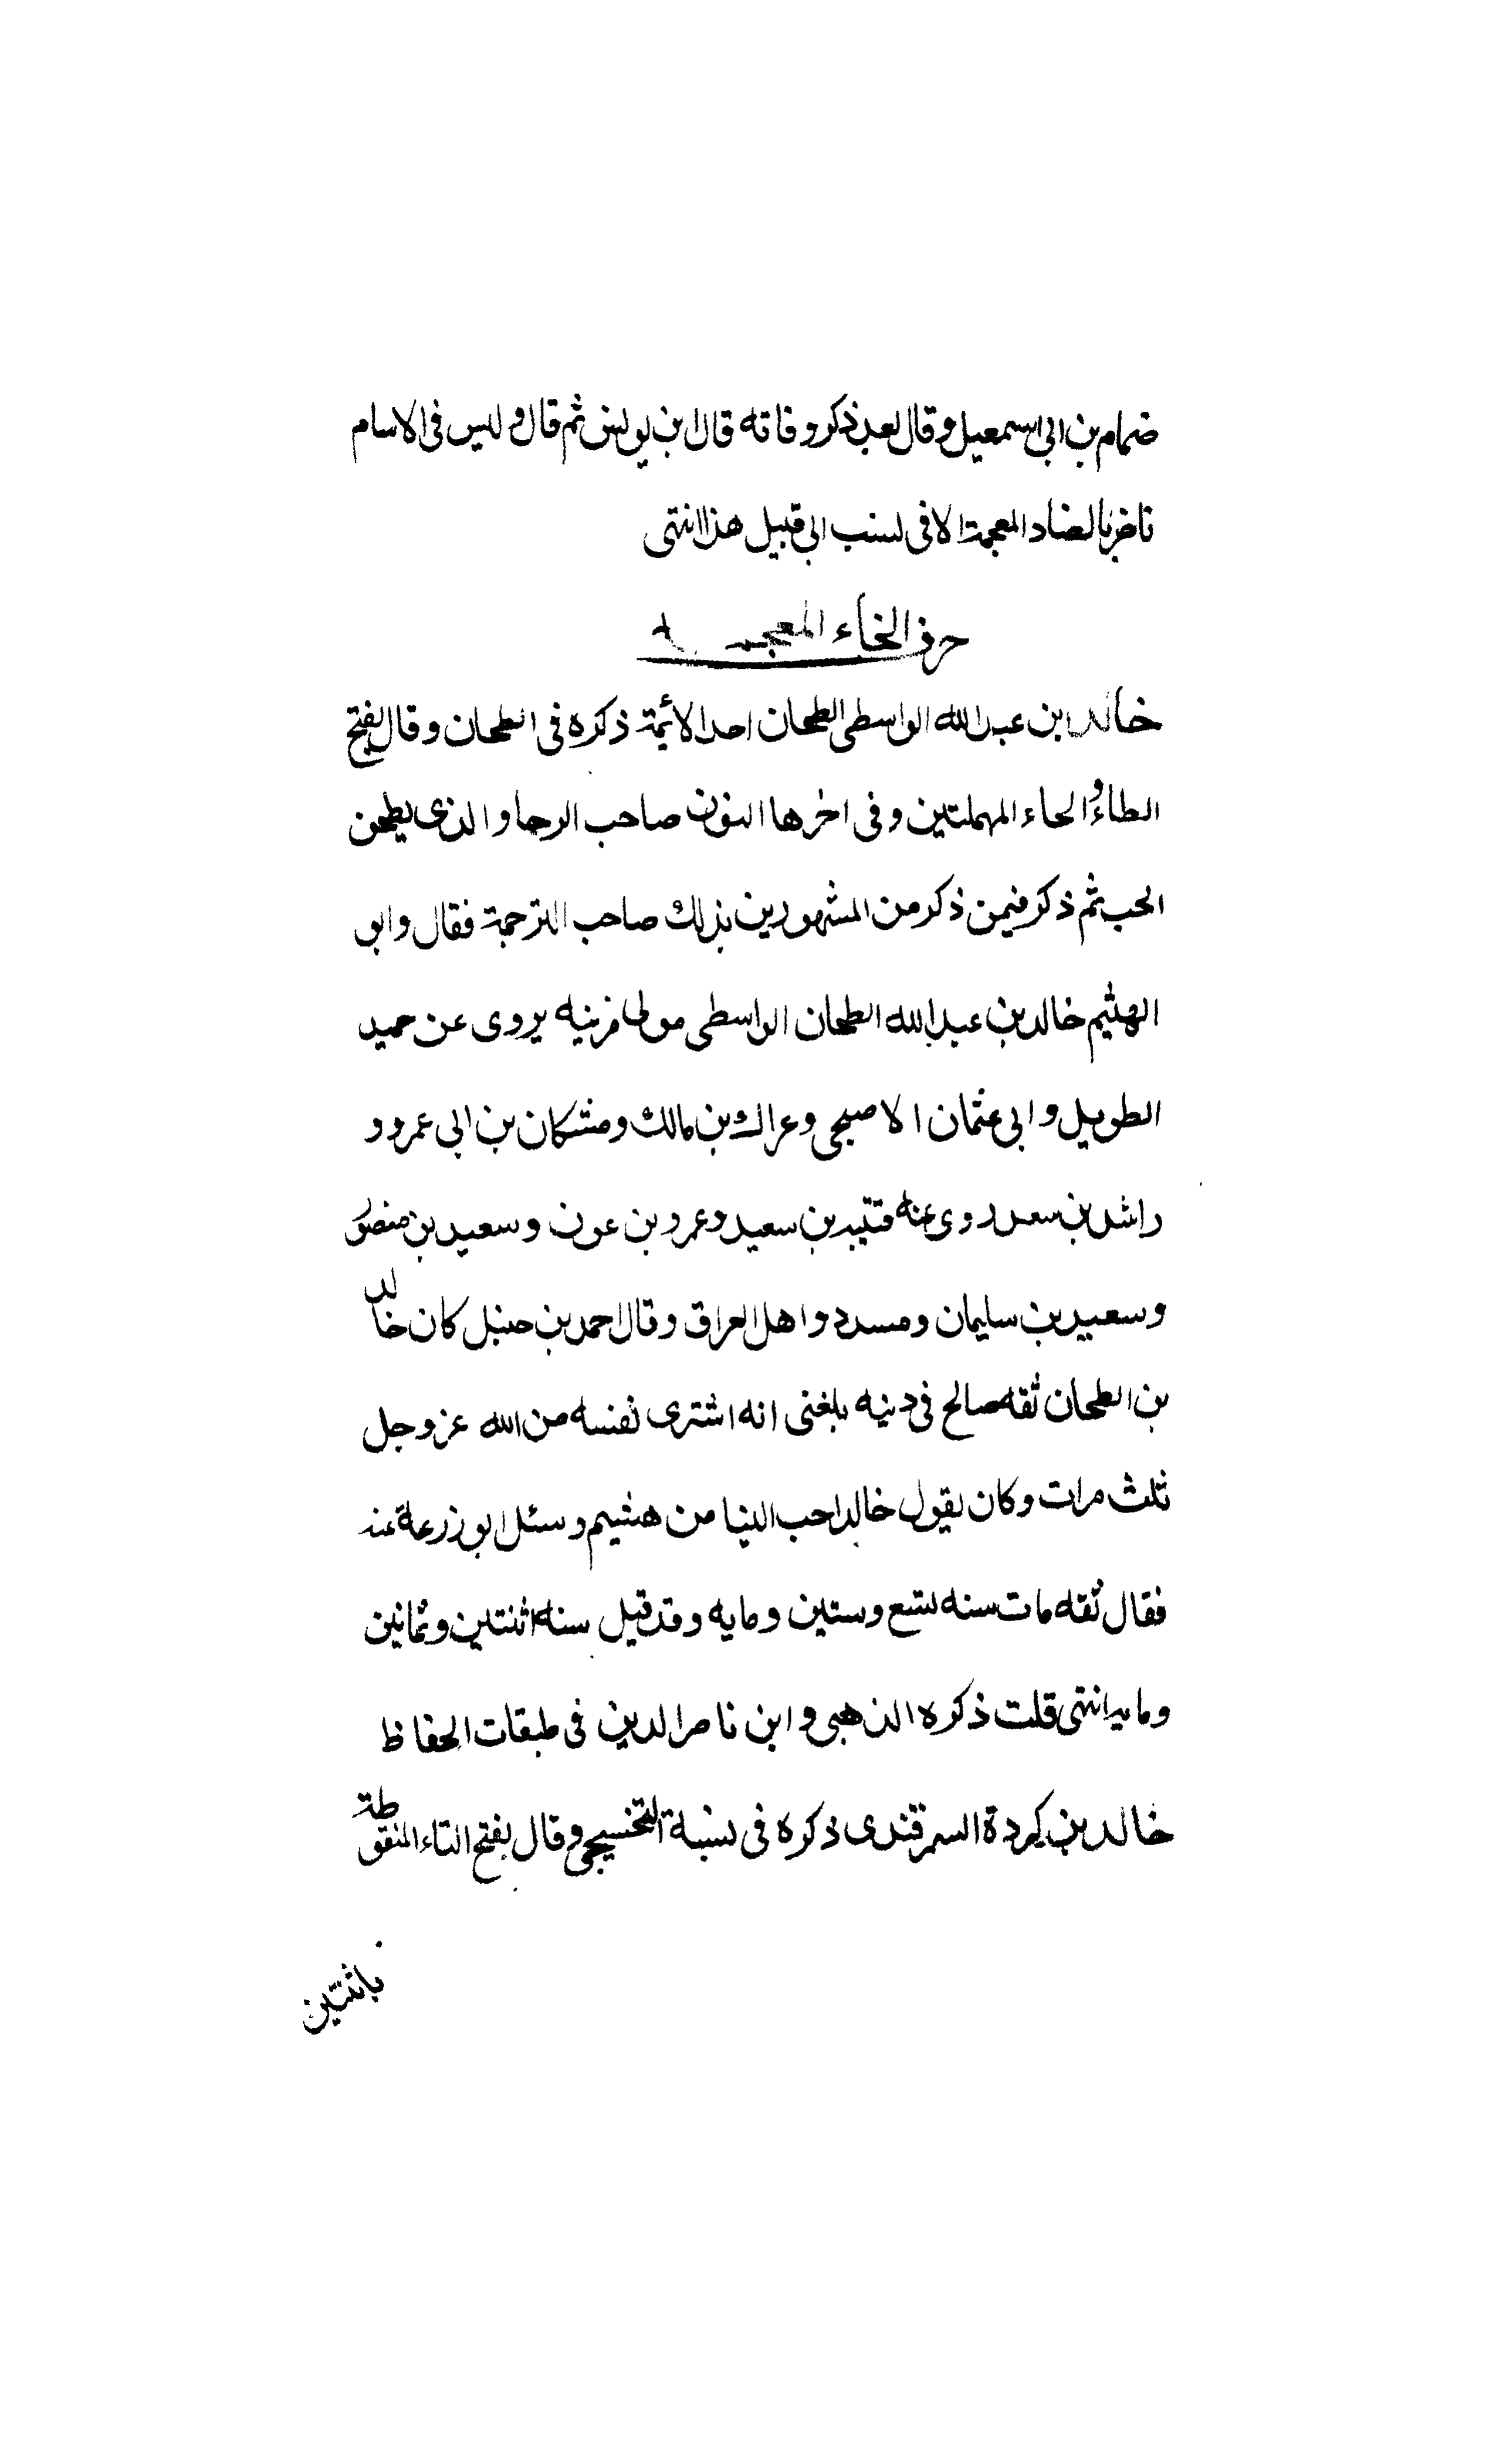 ضمام بن ابى اسمعيل وقال بعد ذكر وفاته قال ابن يونس ثم قال وليس فى الاسام
ناضر بالضاد المعجمة الا فى نسب ابى قبيل هذا انتهى
حرف الخاء المعجمة
خالد ابن عبد الله الواسطى الطحان احد الائمة ذكره فى الطحان وقال بفتح
الطاء والحاء المهملتين وفى اخرها النون صاحب الرحا والذى يطحن
الحب ثم ذكر فيمن ذكر من المشهورين بذلك صاحب الترجمة فقال وابو
الهثيم خالد بن عبد الله الطحان الواسطى مولى مزينه يروى عن حميد
الطويل وابى عثمان الاصبحى وعراك بن مالك ومشكان بن ابى عمرو و
راشد بن سعد روى عنه قتيبه بن سعيد وعمرو بن عون وسعيد بن منصور
وسعيد بن سليمان ومسدد واهل العراق وقال احمد بن حنبل كان خالد
بن الطحان ثقه صالح فى دينه بلغنى انه اشترى نفسه من الله عز وجل
ثلث مرات وكان يقول خالد احب الينا من هشيم وسئل ابو زرعة عنه
فقال ثقه مات سنه تسع وستين ومايه وقد قيل سنه اثنتين وثمانين
ومايه انتهى قلت ذكره الذهبى وابن ناصر الدين فى طبقات الحفاظ
خالد بن كردة السمرقندى ذكره فى نسبة التخسيجى وقال بفتح التاء المنقوطة
باثنتين